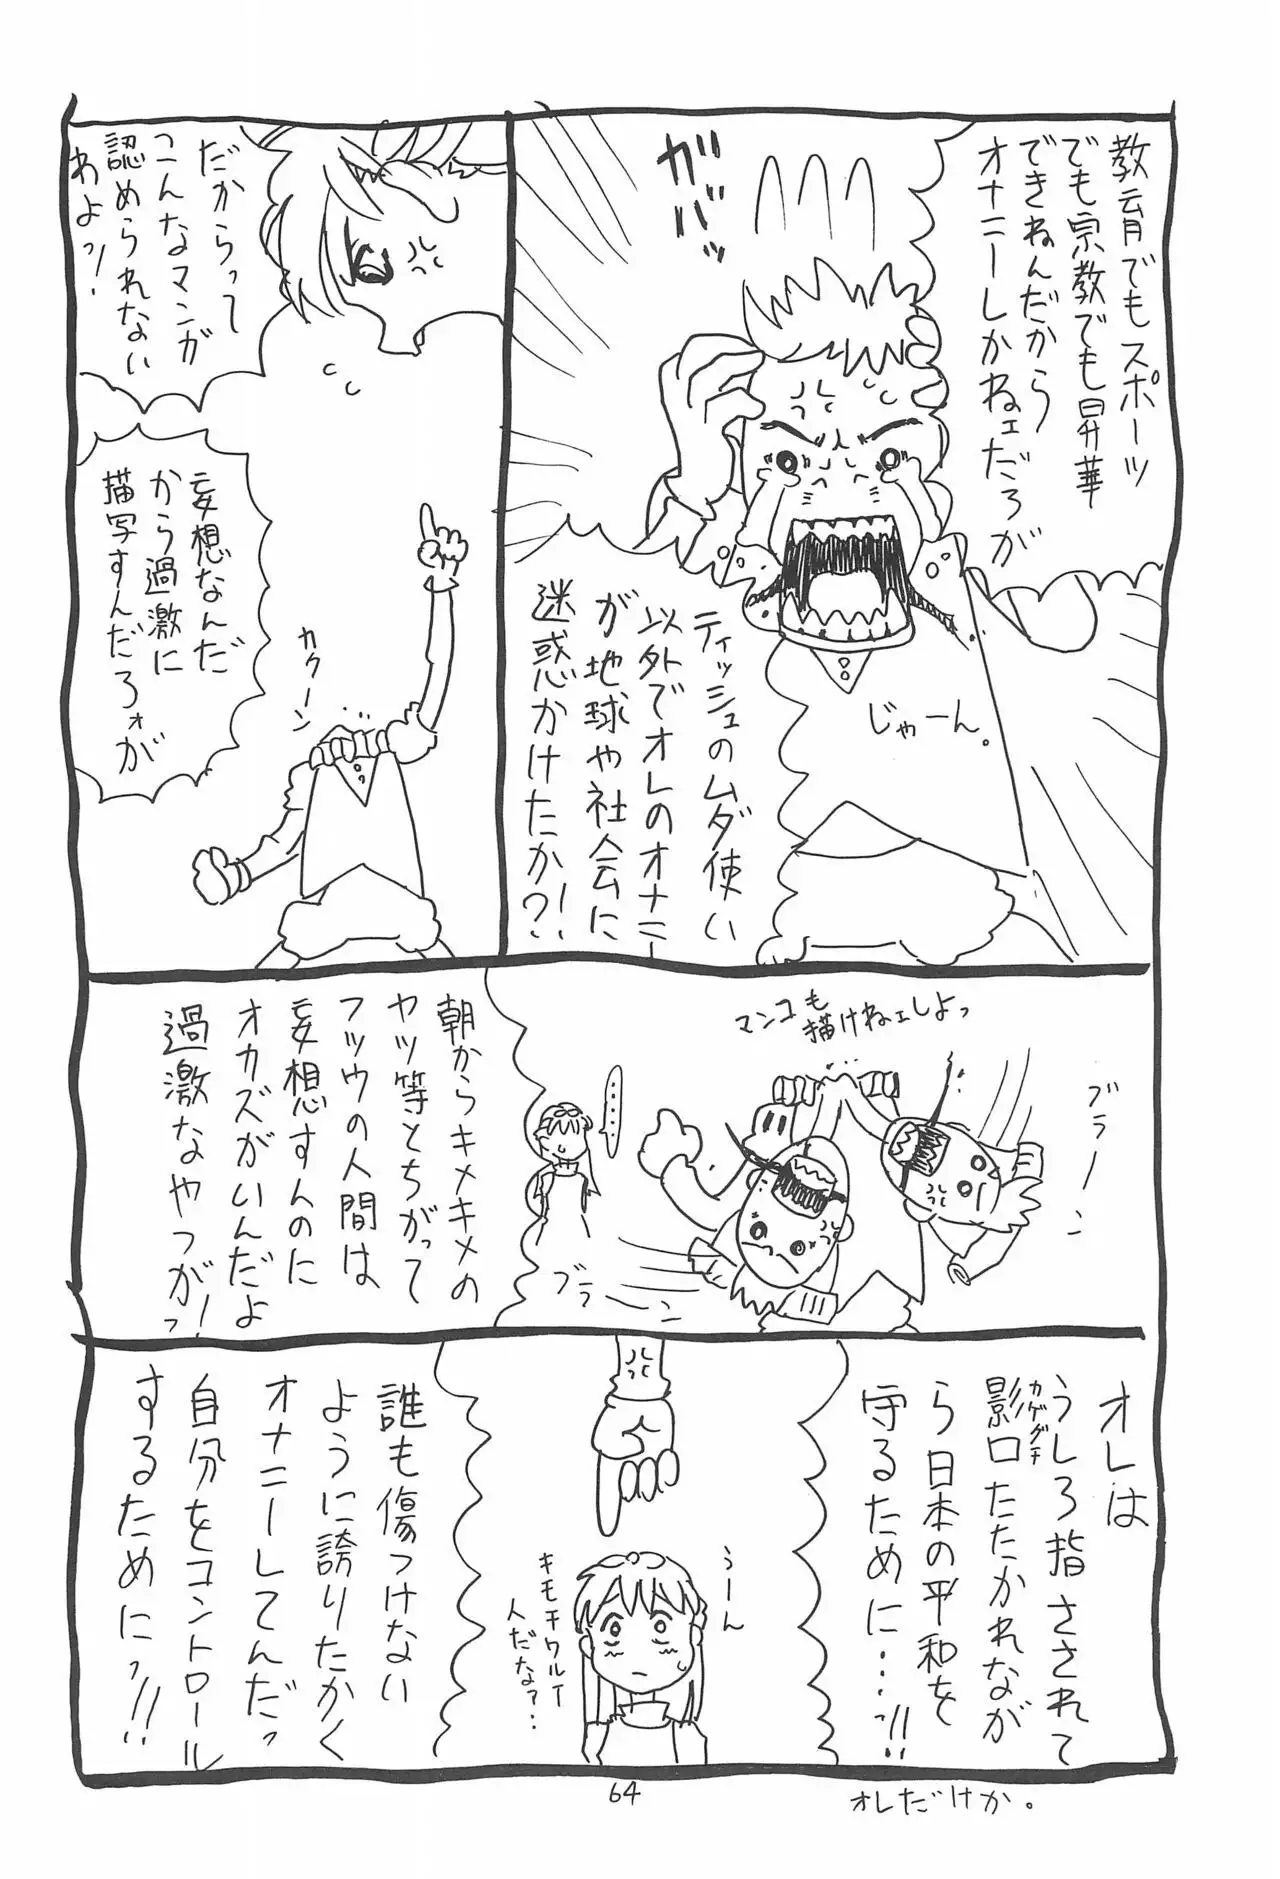 教育でもスポーツ
でも宗教でも昇華
できねんだから
オナニーしかねェだろが
ガバッ
じゃーん。
ティッシュのムダ使い
以外でオレのオナニー
が地球や社会に
迷惑かけたか?!
だからって
こんなマンガ
認められない
わよっ!
妄想なんだ
から過激に
描写すんだろォが
カクーン
マンコも
描けねェしよっ
ブラーン
ブラーン
……
朝からキメキメの
ヤツ等とちがって
フツウの人間は
妄想すんのに
オカズがいんだよ
過激なやつがっー
オレは
うしろ指さされて
影口たたかれなが
カゲグチ
ら日本の平和を
守るために…っ!!
うーん
キモチワルイ
人だな?..
誰も傷つけない
ように誇りたかく
オナニーしてんだっ
自分をコントロール
するためにっ!!
64
オレだけか。